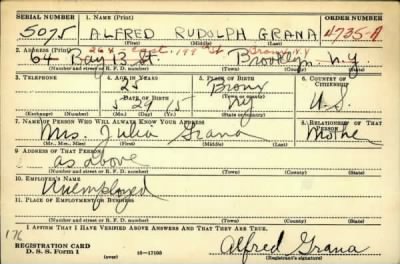 SERIAL NUMBER 1. NAME (Print) ORDER NUMBER
5075 ALFRED RUDOLPH GRANA 4735-A
(First) (Middle) (Last)
2. ADDRESS (Print) 264 East 199 St Bronx N.Y
64 Bay 13 St. Brooklyn N.Y.
(Number and street or R. F. D. number) (Town) (County) (State)
3. TELEPHONE 4. AGE IN YEARS 5. PLACE OF BIRTH 6. COUNTRY OF CITIZENSHIP
25 Bronx
DATE OF BIRTH (Town) (County)
29 15 NY U.S.
(Exchange) (Number) (Mo.) (Day) (Yr.) (State or country)
7. NAME OF PERSON WHO WILL ALWAYS KNOW YOUR ADDRESS 8. RELATIONSHIP OF THAT PERSON
Mrs. Julia Grana Mothe
(Mr., Mrs., Miss) (First) (Middle) (Last)
9. ADDRESS OF THAT PERSON
as above
(Number and street or R. F. D. number) (Town) (County) (State)
10. EMPLOYER'S NAME
Unemployed
11. PLACE OF EMPLOYMENT OR BUSINESS
(Number and street or R. F. D. number) (Town) (County) (State)
I AFFIRM THAT I HAVE VERIFIED ABOVE ANSWERS AND THAT THEY ARE TRUE.
176
REGISTRATION CARD
D. S. S. Form 1 (over) 16—17105 Alfred Grana
(Registrant's signature)